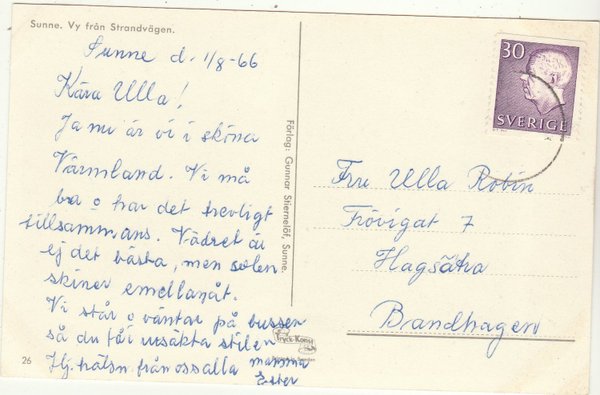 Sunne. Vy från Strandvägen.
Sunne d. 1/8-66
Kära Ulla!
Ja nu är vi i sköna
Värmland. Vi må
bra o har det trevligt
tillsammans. Vädret är
ej det bästa, men solen
skiner emellanåt.
Vi står o väntar på bussen
så du får ursäkta stilen
Hj. hälsn från oss alla mamma
Ester
26
Förlag: Gunnar Stiernelöf, Sunne.
Tryck-Konst
30
SVERIGE
Fru Ulla Robin
Frövigat 7
Hagsätra
Brandhagen